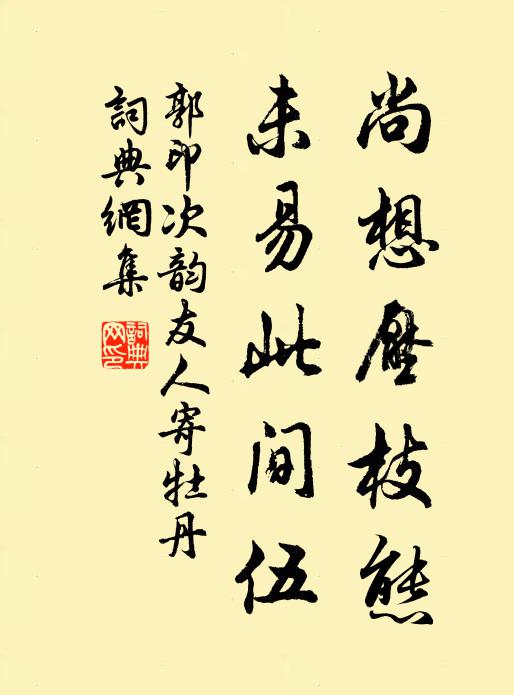 尚想壓枝態
未易此間伍
郭印次韵友人寄牡丹
詞典網集
詞典
网印